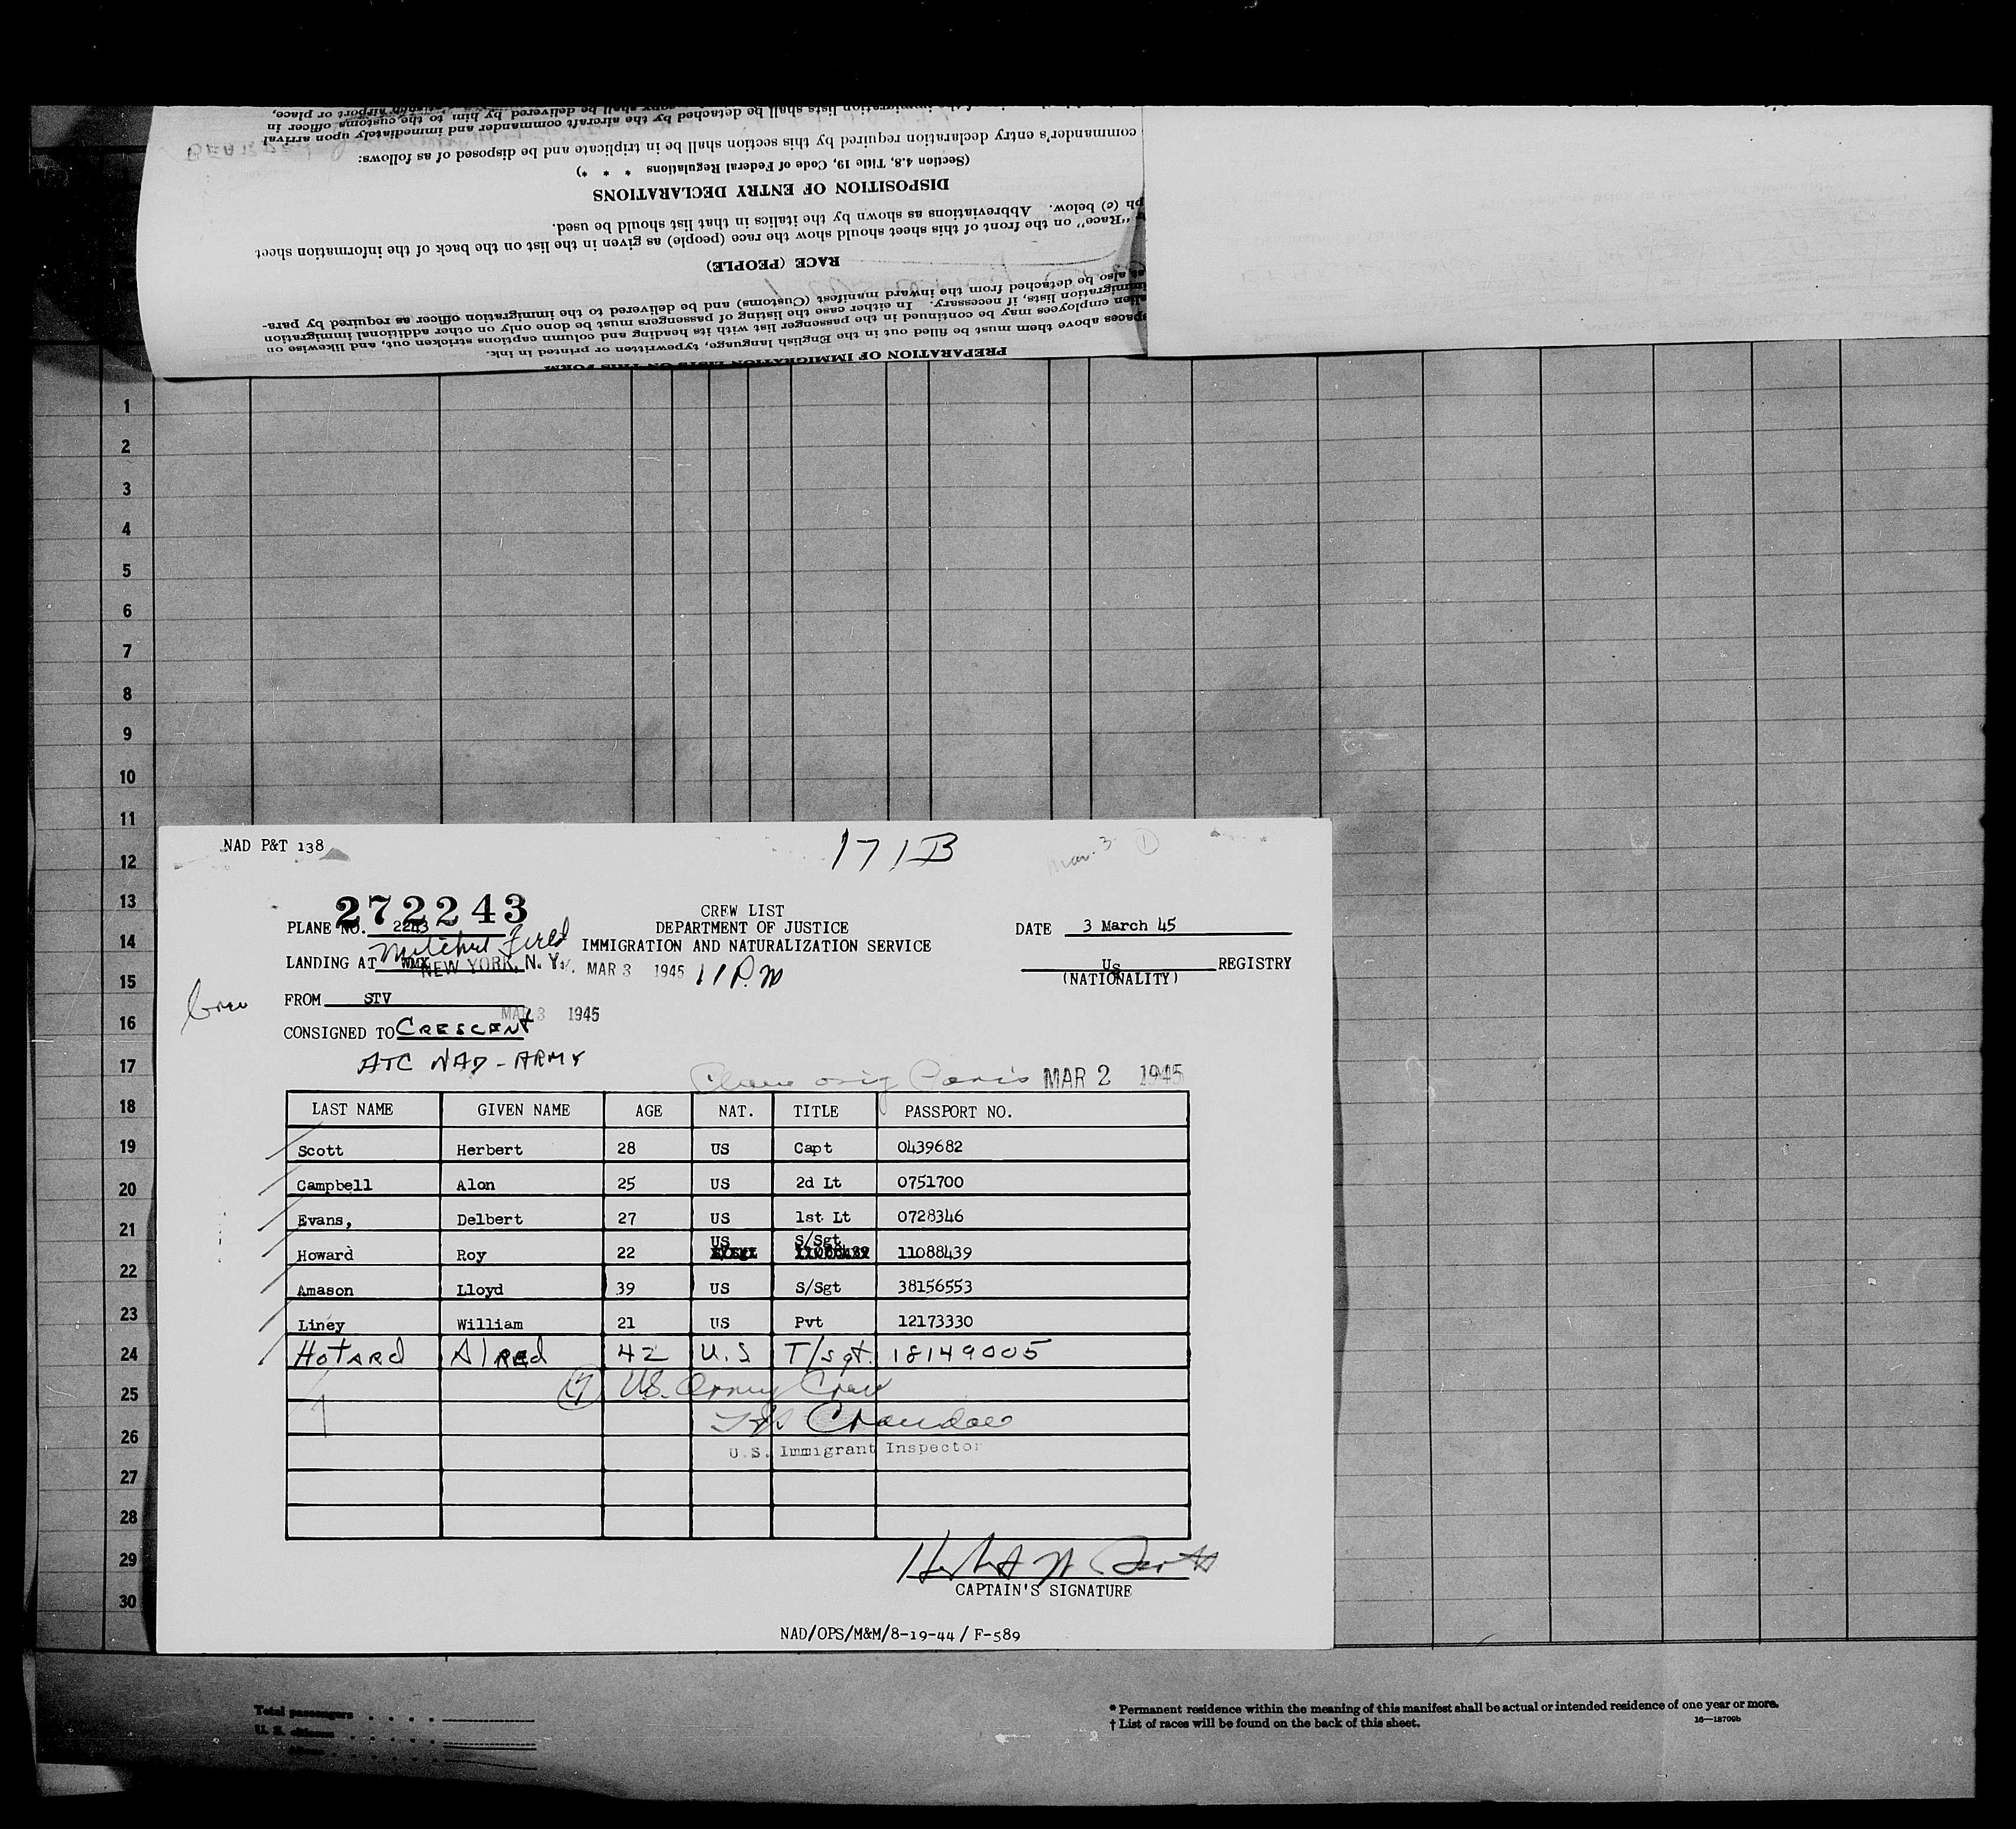 immigration lists shall be detached by the aircraft commander and immediately upon arrival
shall be delivered by him to the customs officer in
airport or place,
commander's entry declaration required by this section shall be in triplicate and disposed of as follows:
(Section 4.8, Title 19, Code of Federal Regulations * * *)
DISPOSITION OF ENTRY DECLARATIONS
ph (c) below. Abbreviations as shown by the italics in that list should be used.
"Race" on the front of this sheet should show the race (people) as given in the list on the back of the information sheet
RACE (PEOPLE)
also be detached from the inward manifest (Customs) and be delivered to the immigration officer as required by para-
immigration lists, if necessary. In either case the listing of passengers must be done only on other additional immigration
alien employees may be continued in the passenger list with its heading and column captions stricken out, and likewise on
spaces above them must be filled out in the English language, typewritten or printed in ink.
PREPARATION OF IMMIGRATION LISTS ON THIS FORM
1
2
3
4
5
6
7
8
9
10
11
12
13
14
15
16
17
18
19
20
21
22
23
24
25
26
27
28
29
30
NAD P&T 138
171B
Mar. 3 1
272243
PLANE NO. 2243
CREW LIST
DEPARTMENT OF JUSTICE
IMMIGRATION AND NATURALIZATION SERVICE
DATE 3 March 45
Mitchel Field
LANDING AT WMX NEW YORK, N. Y. MAR 3 1945 11 P.M
Us REGISTRY
(NATIONALITY)
Crew
FROM STV
MAR 3 1945
CONSIGNED TO CRESCENT
ATC NAD - ARMY
Plane orig Paris MAR 2 1945
LAST NAME GIVEN NAME AGE NAT. TITLE PASSPORT NO.
Scott Herbert 28 US Capt 0439682
Campbell Alon 25 US 2d Lt 0751700
Evans, Delbert 27 US 1st Lt 0728346
Howard Roy 22 US S/Sgt 11088439
Amason Lloyd 39 US S/Sgt 38156553
Liney William 21 US Pvt 12173330
HOTARD AlREd 42 U.S T/sgt. 18149005
(7) U.S. Army Crew
U.S. Immigrant Inspector
Herbert W Scott
CAPTAIN'S SIGNATURE
NAD/OPS/M&M/8-19-44/ F-589
Total passengers . . . .
U. S. citizens . . . . .
Aliens . . . . . .
* Permanent residence within the meaning of this manifest shall be actual or intended residence of one year or more.
† List of races will be found on the back of this sheet.
16—18700b